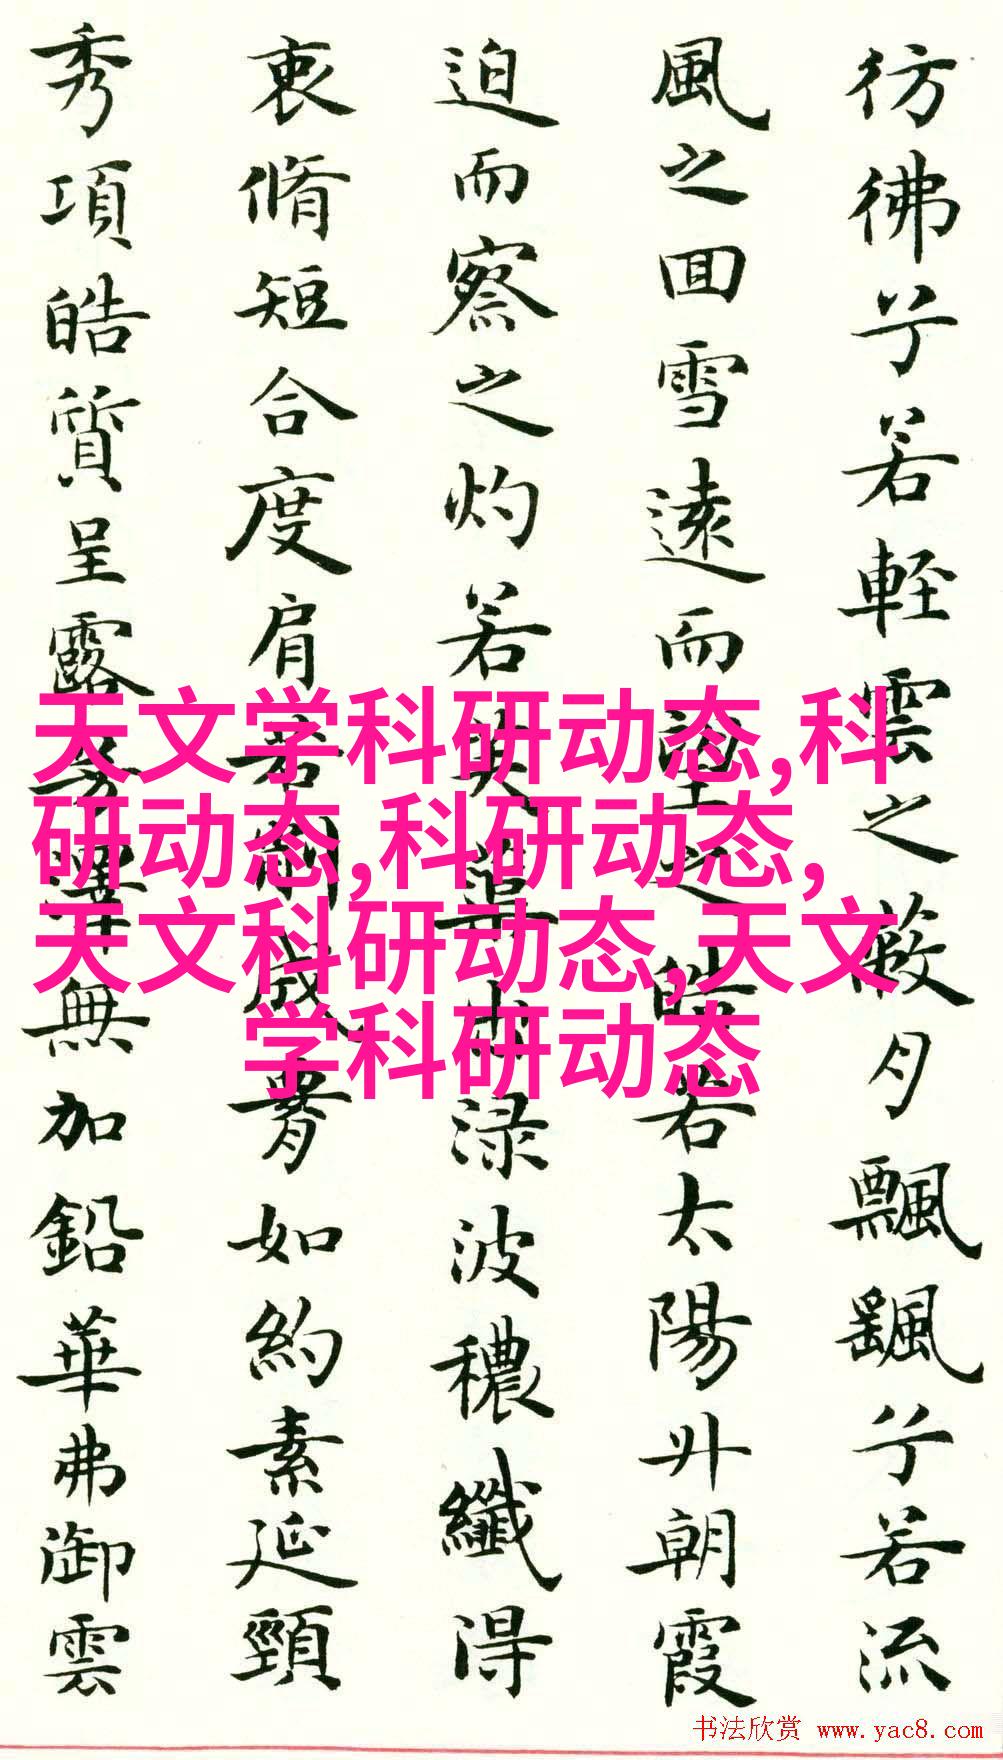 彷彿兮若軽雲之蔽月飄飖兮若流
風之回雪遠而望之皎若太陽升朝霞
迫而察之灼若芙蕖出渌波穠纖得
衷脩短合度肩若削成腰如約素延頸
秀項皓質呈露芳澤無加鉛華弗御雲
天文学科研动态,科
研动态,科研动态,
天文科研动态,天文
学科研动态
书法欣赏 www.yac8.com